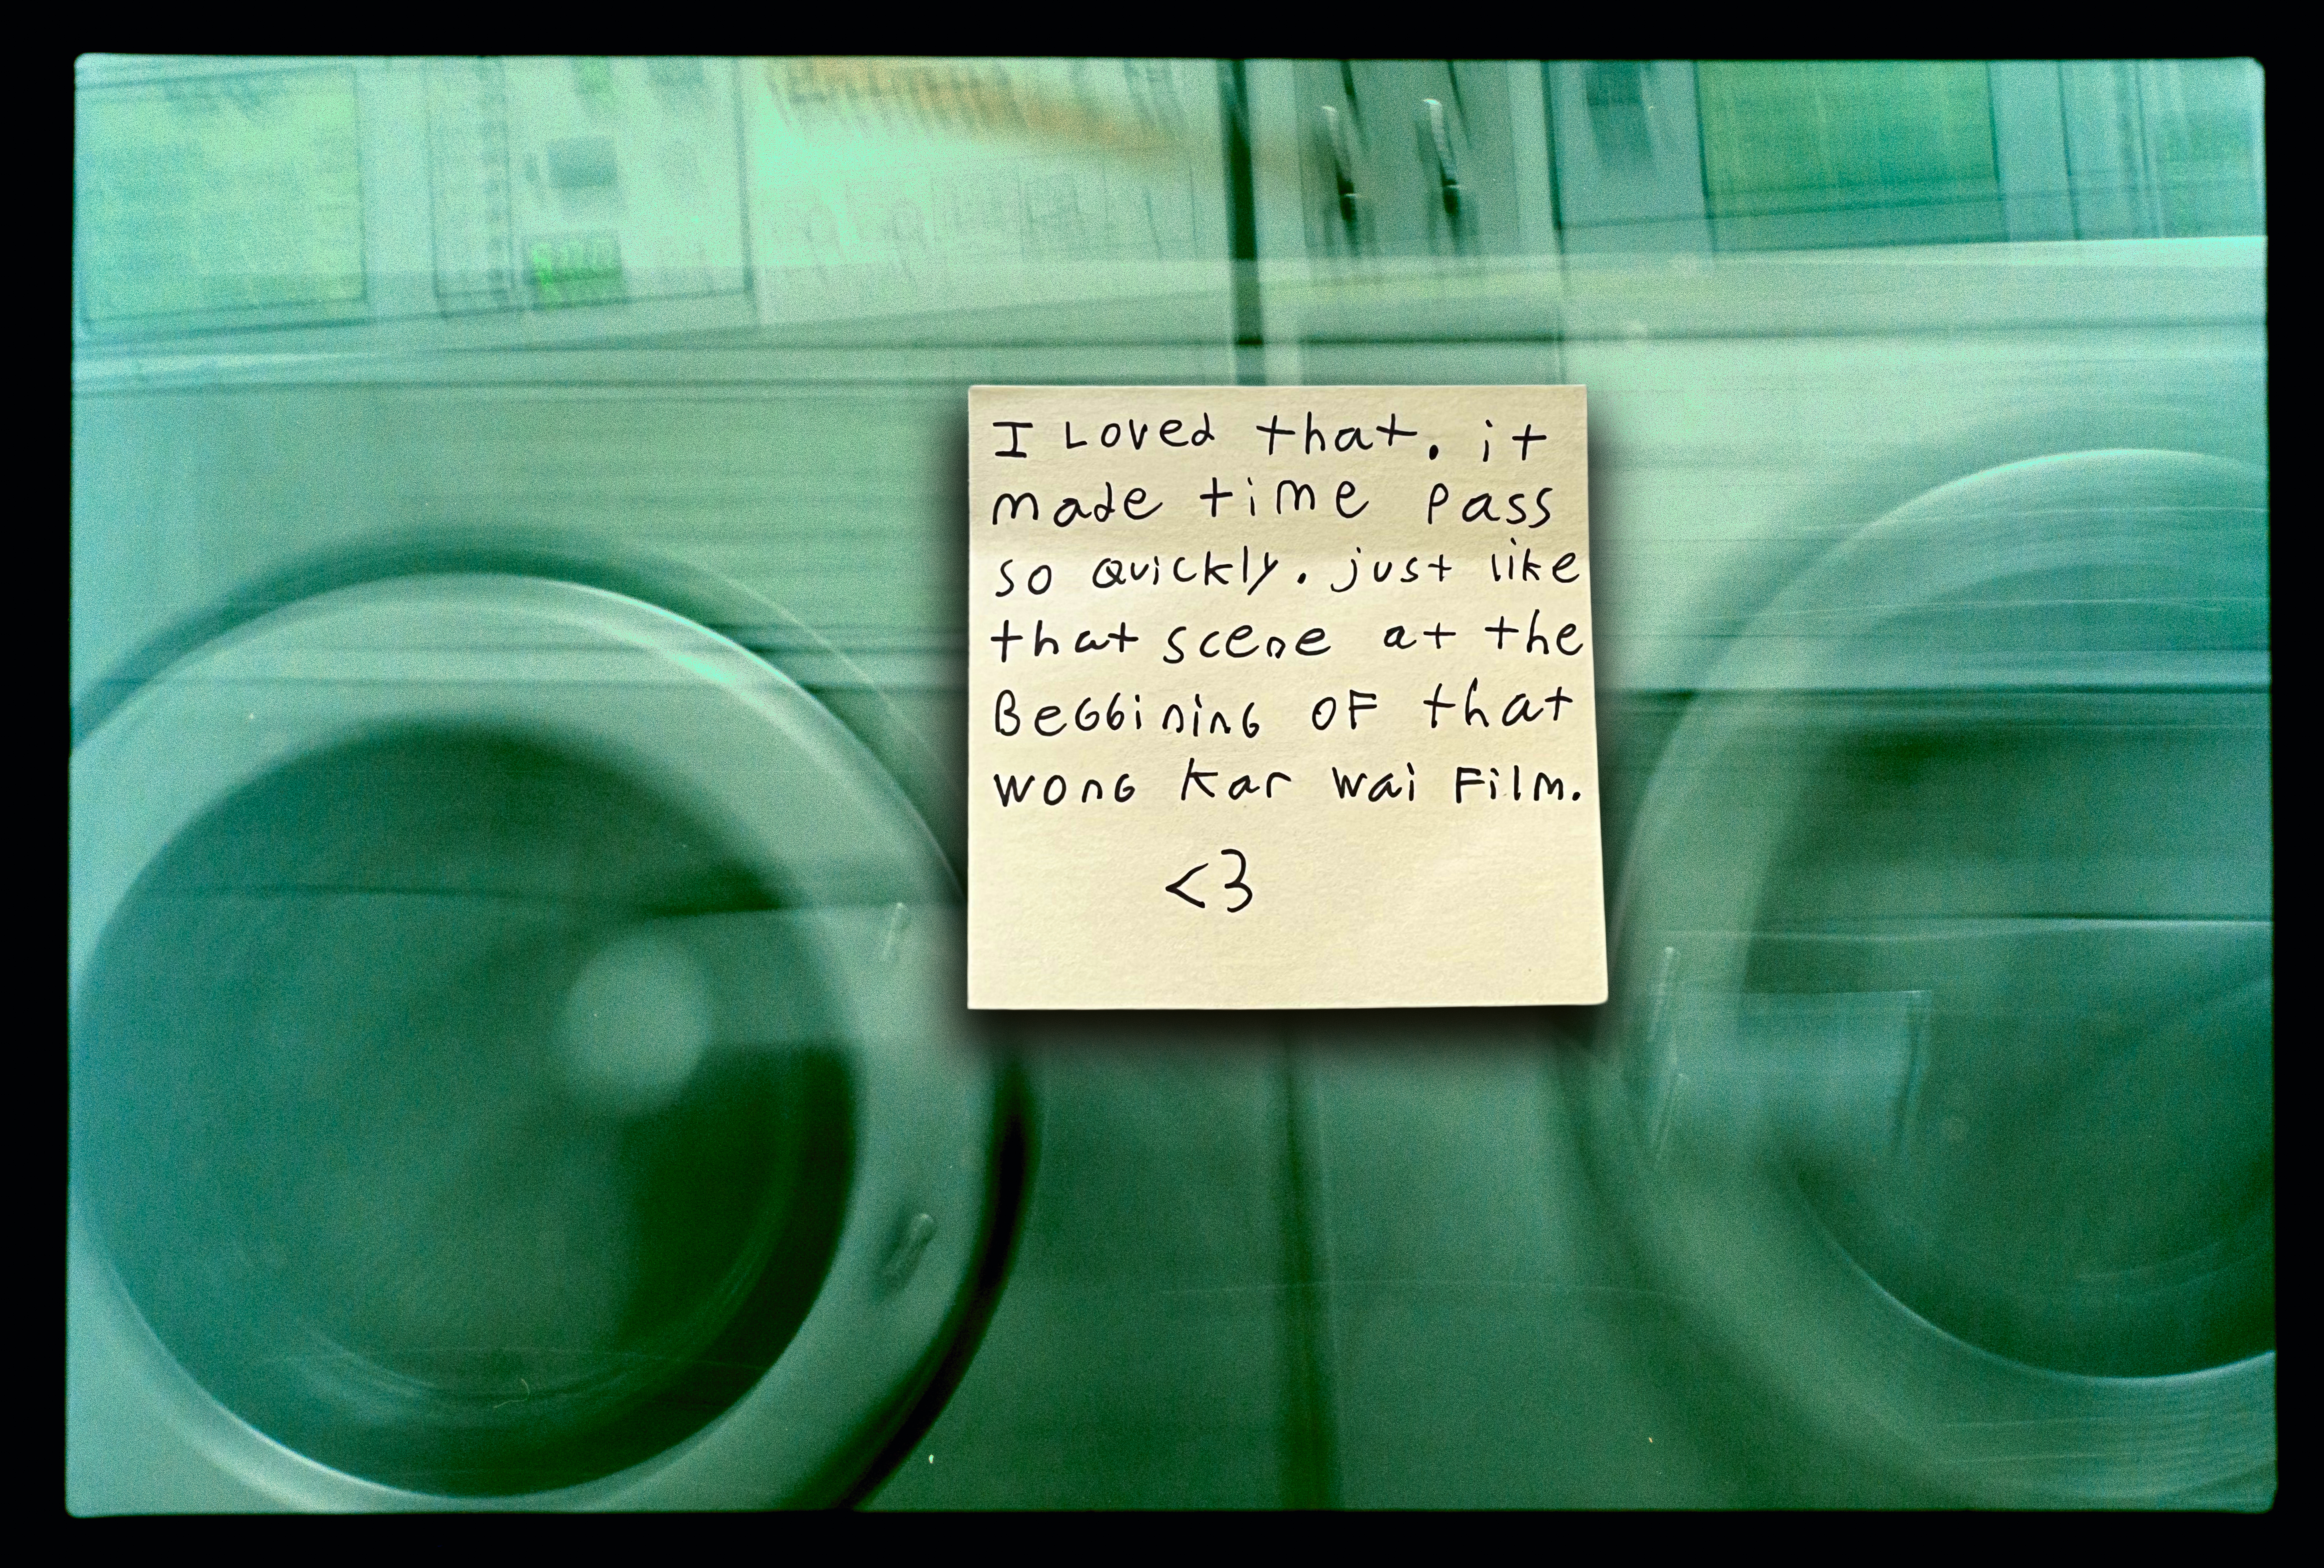 I Loved that. it
made time pass
so quickly. just like
that scene at the
Beggining of that
wong kar wai Film.
<3